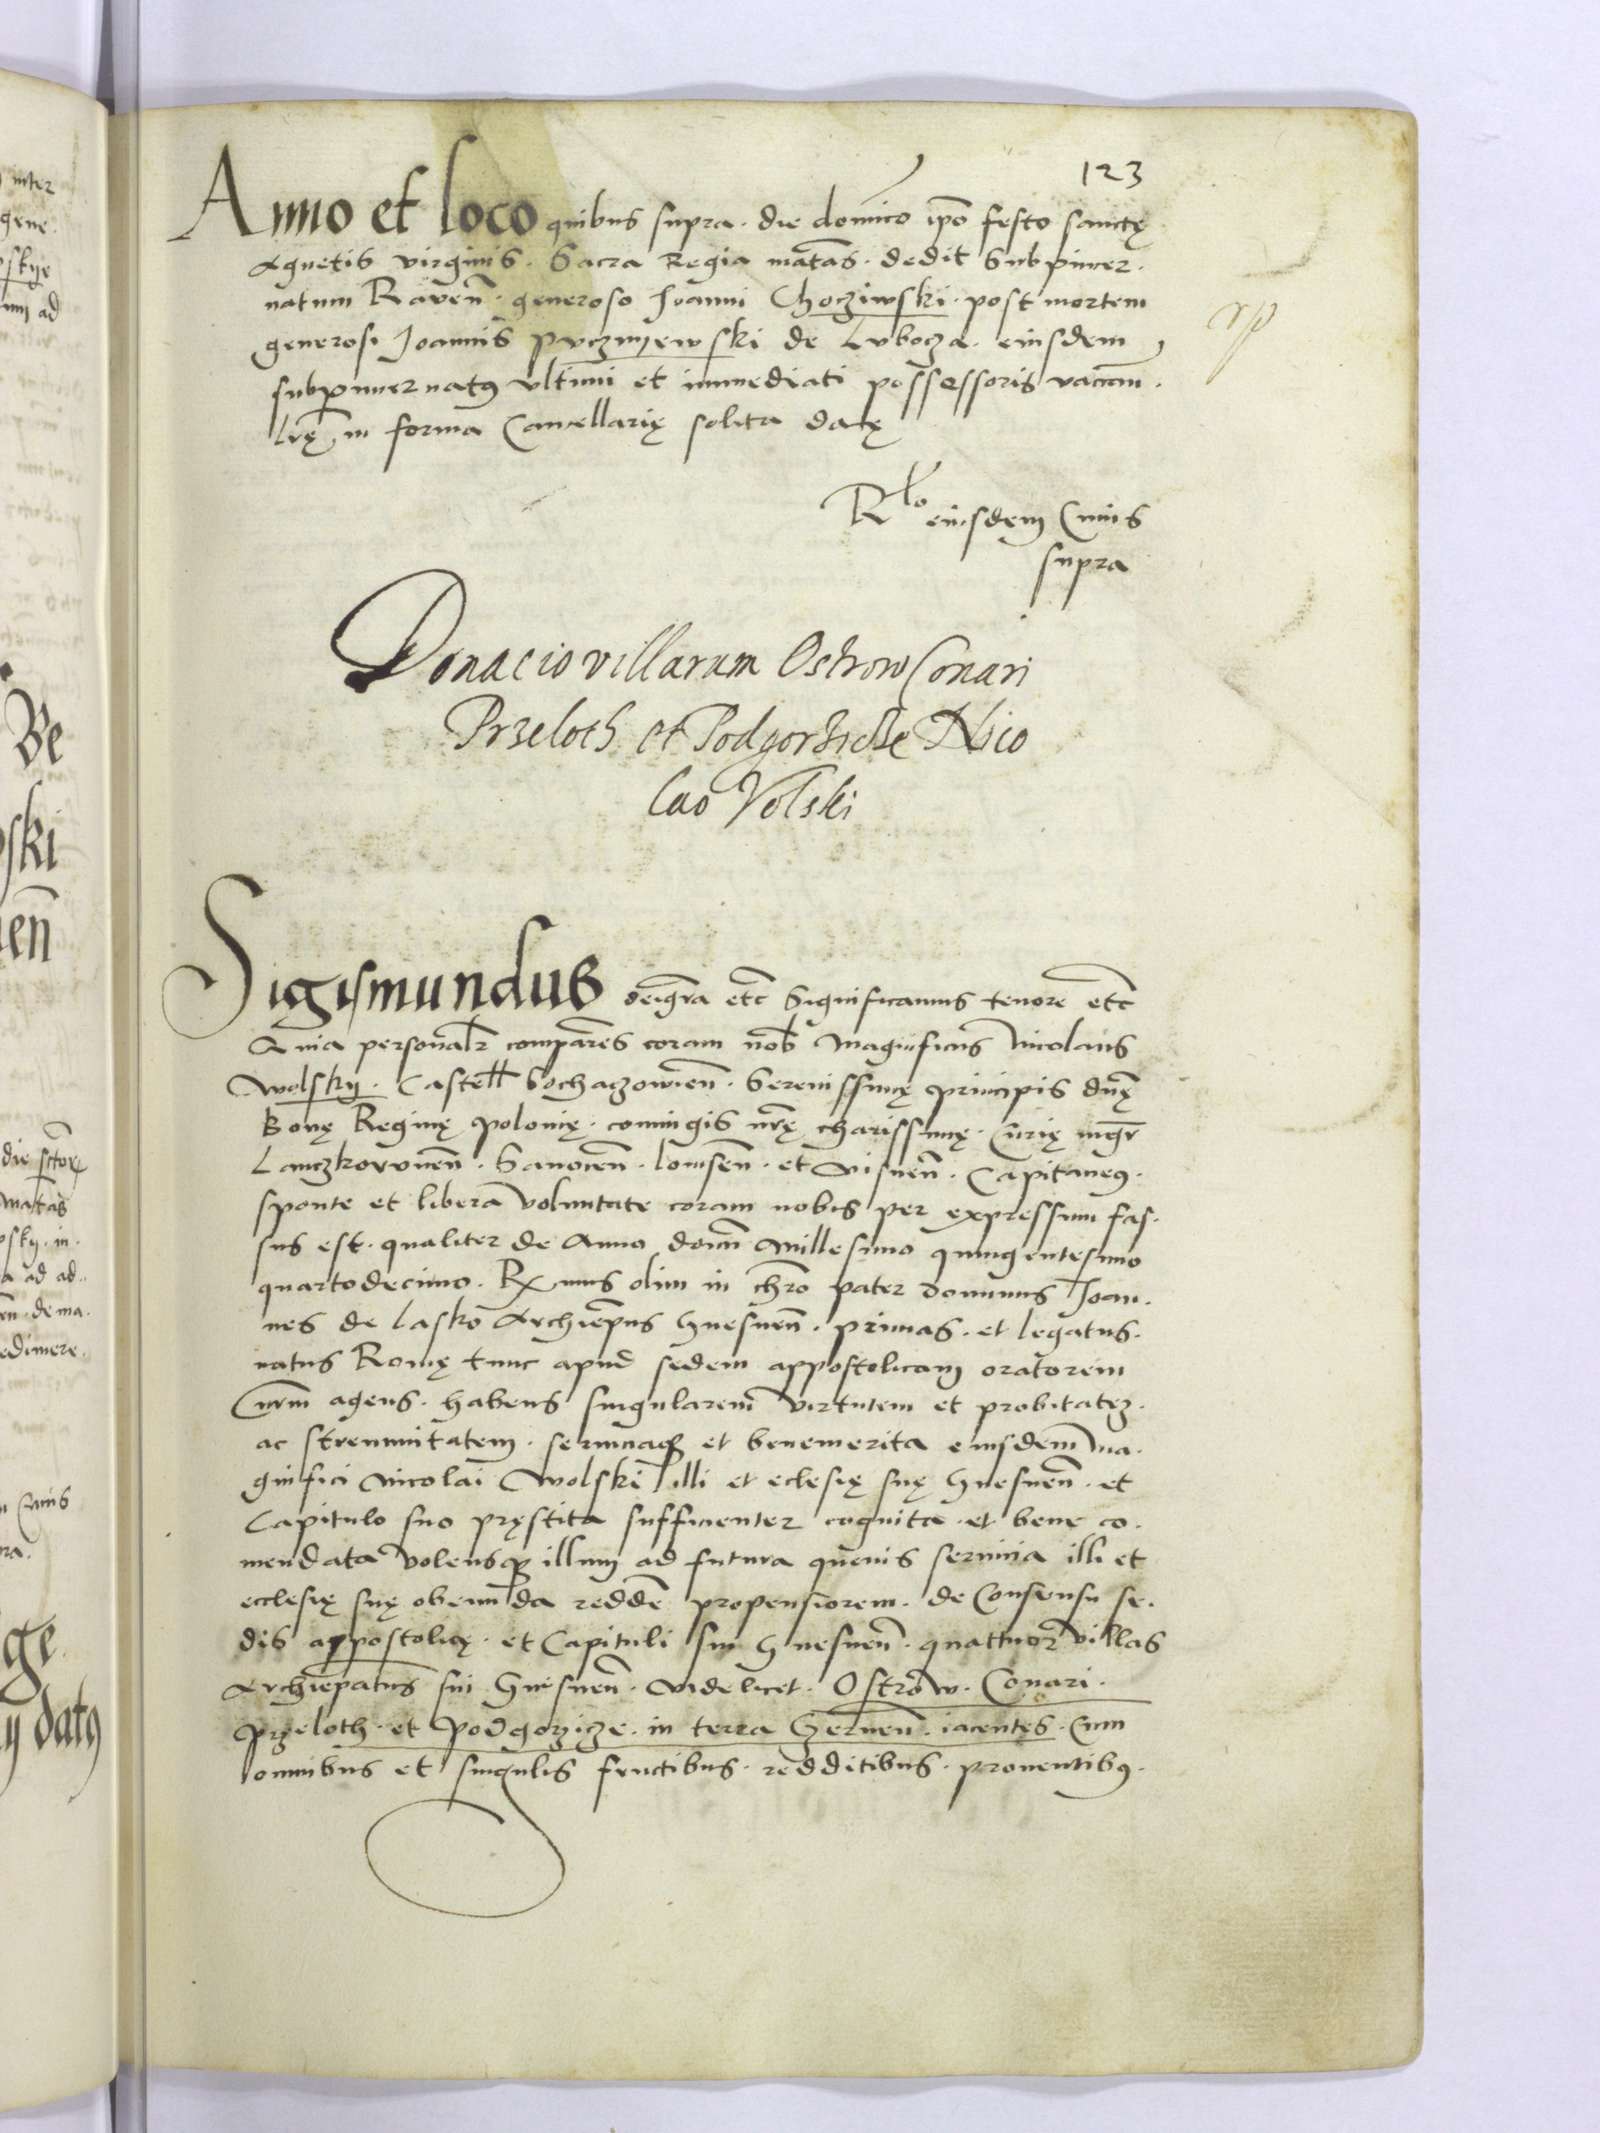 123
Anno et loco quibus supra. die domico ipo festo sanctę
Agnetis virginis. Sacra Regia matas. dedit Subpincer.
natum Raven. generoso Joanni Choczÿwski. post mortem
generosi Joannis Puczniewski de Lubocza. eiusdem
subpincernatus ultimi et immediati possessoris vacan.
Lrę in forma Cancellarię solita datę
Rlo eiusdem Cuius
supra
Donacio villarum Ostrow Conari
Przeloth et Podgorzicze Nico
lao Volski
Sigismundus dei gra etc Significamus tenore etc
Quia personalr comparens coram nob Magnificus Nicolaus
Wolsky. Castell Sochaczowien. Serenissimę principis dnę
Bonę Reginę Polonię. coniugis nrę charissimę. Curię mgr
Lanczkorunen. Sanocen. Lomsen. et Visnen. Capitaneus.
sponte et libera voluntate coram nobis per expressum fas.
sus est. qualiter de Anno domni Millesimo quingentesimo
quartodecimo. Rmus olim in chro pater dominus Joan.
nes de Lasko Archiepus Gnesnen. primas. et legatus.
natus Romę tunc apud sedem appostolicam oratorem
nrm agens. habens singularem virtutem et probitatez.
ac strennuitatem. serviciaque et benemerita eiusdem ma.
gnifici Nicolai Wolski illi et eclesię suę Gnesnen. et
Capitulo suo pręstita sufficienter cognita. et bene co.
mendata volensque illum ad futura quevis servicia illi et
ecclesię suę obeunda redde propensiorem. de Consensu se.
dis appostolicę. et Capituli sui Gnesnen. quattuor villas
Archiepatus sui Gnesnen. videlicet. Ostrow. Conari.
Przeloth. et Podgorzicze. in terra Czernen. iacentes. Cum
omnibus et singulis fructibus. redditibus. proventibus.